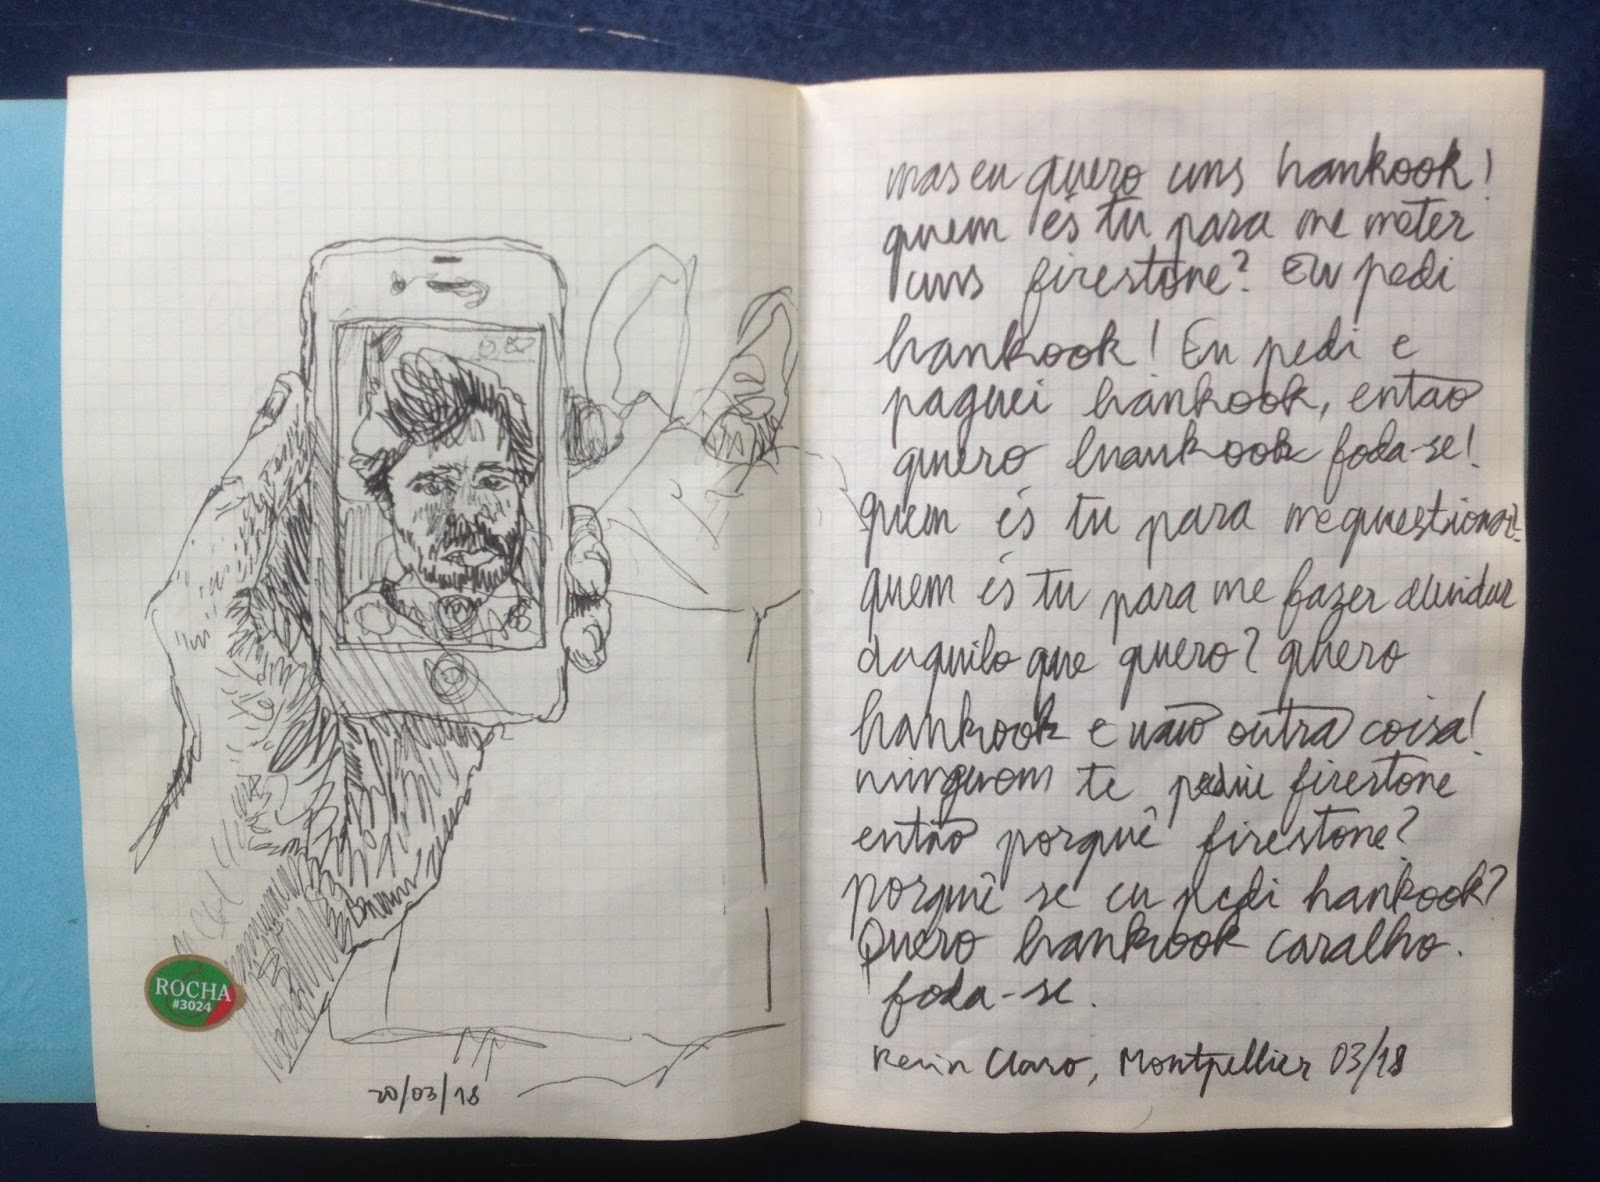 ROCHA
#3024
20/03/18
mas eu quero uns hankook!
quem és tu para me meter
uns firestone? Eu pedi
hankook! Eu pedi e
paguei hankook, então
quero hankook foda-se!
quem és tu para me questionar?
quem és tu para me fazer duvidar
daquilo que quero? quero
hankook e não outra coisa!
ninguem te pediu firestone
então porquê firestone?
porquê se eu pedi hankook?
Quero hankook caralho.
foda-se.
Kevin Claro, Montpellier 03/18